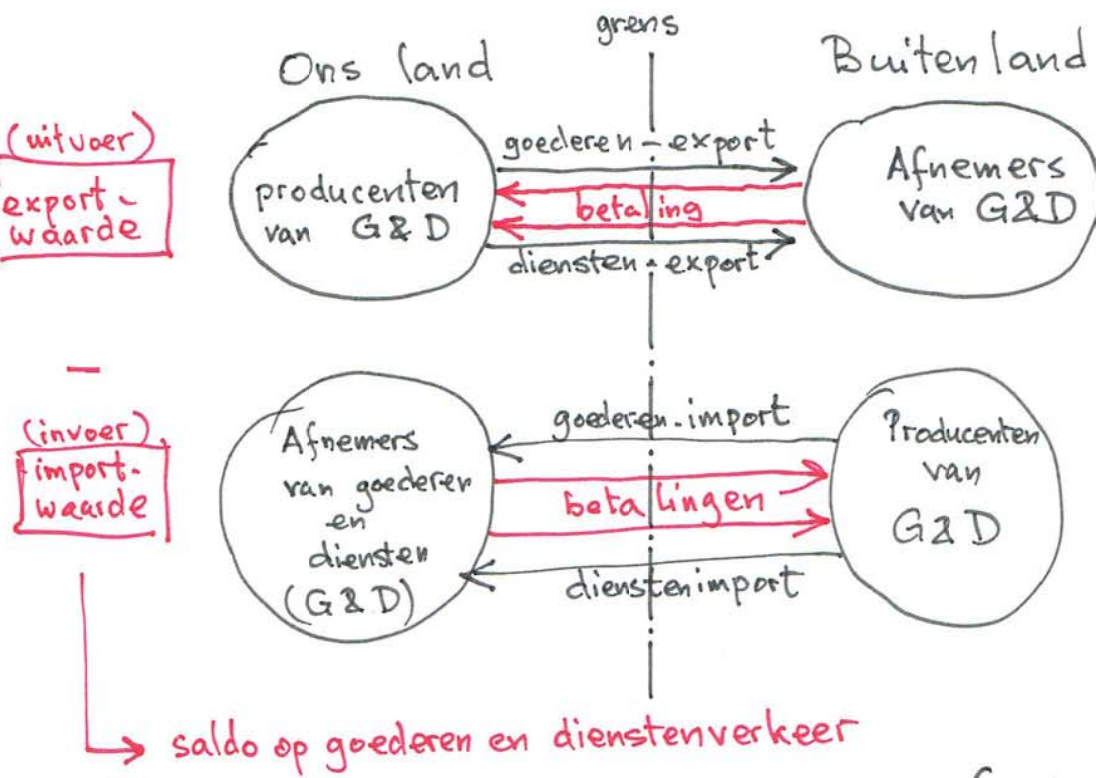 grens
Ons land
Buitenland
(uitvoer)
export-
waarde
producenten
van G&D
goederen-export
betaling
diensten-export
Afnemers
van G&D
-
(invoer)
import-
waarde
Afnemers
van goederen
en
diensten
(G&D)
goederen-import
betalingen
dienstenimport
Producenten
van
G&D
saldo op goederen en dienstenverkeer